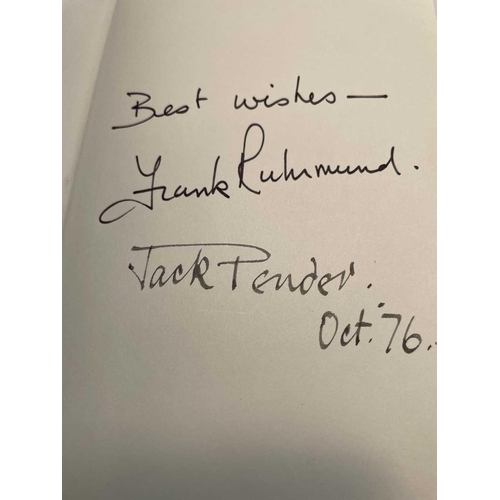 Best wishes —
Frank Ruhrmund.
Jack Pender.
Oct. 76.